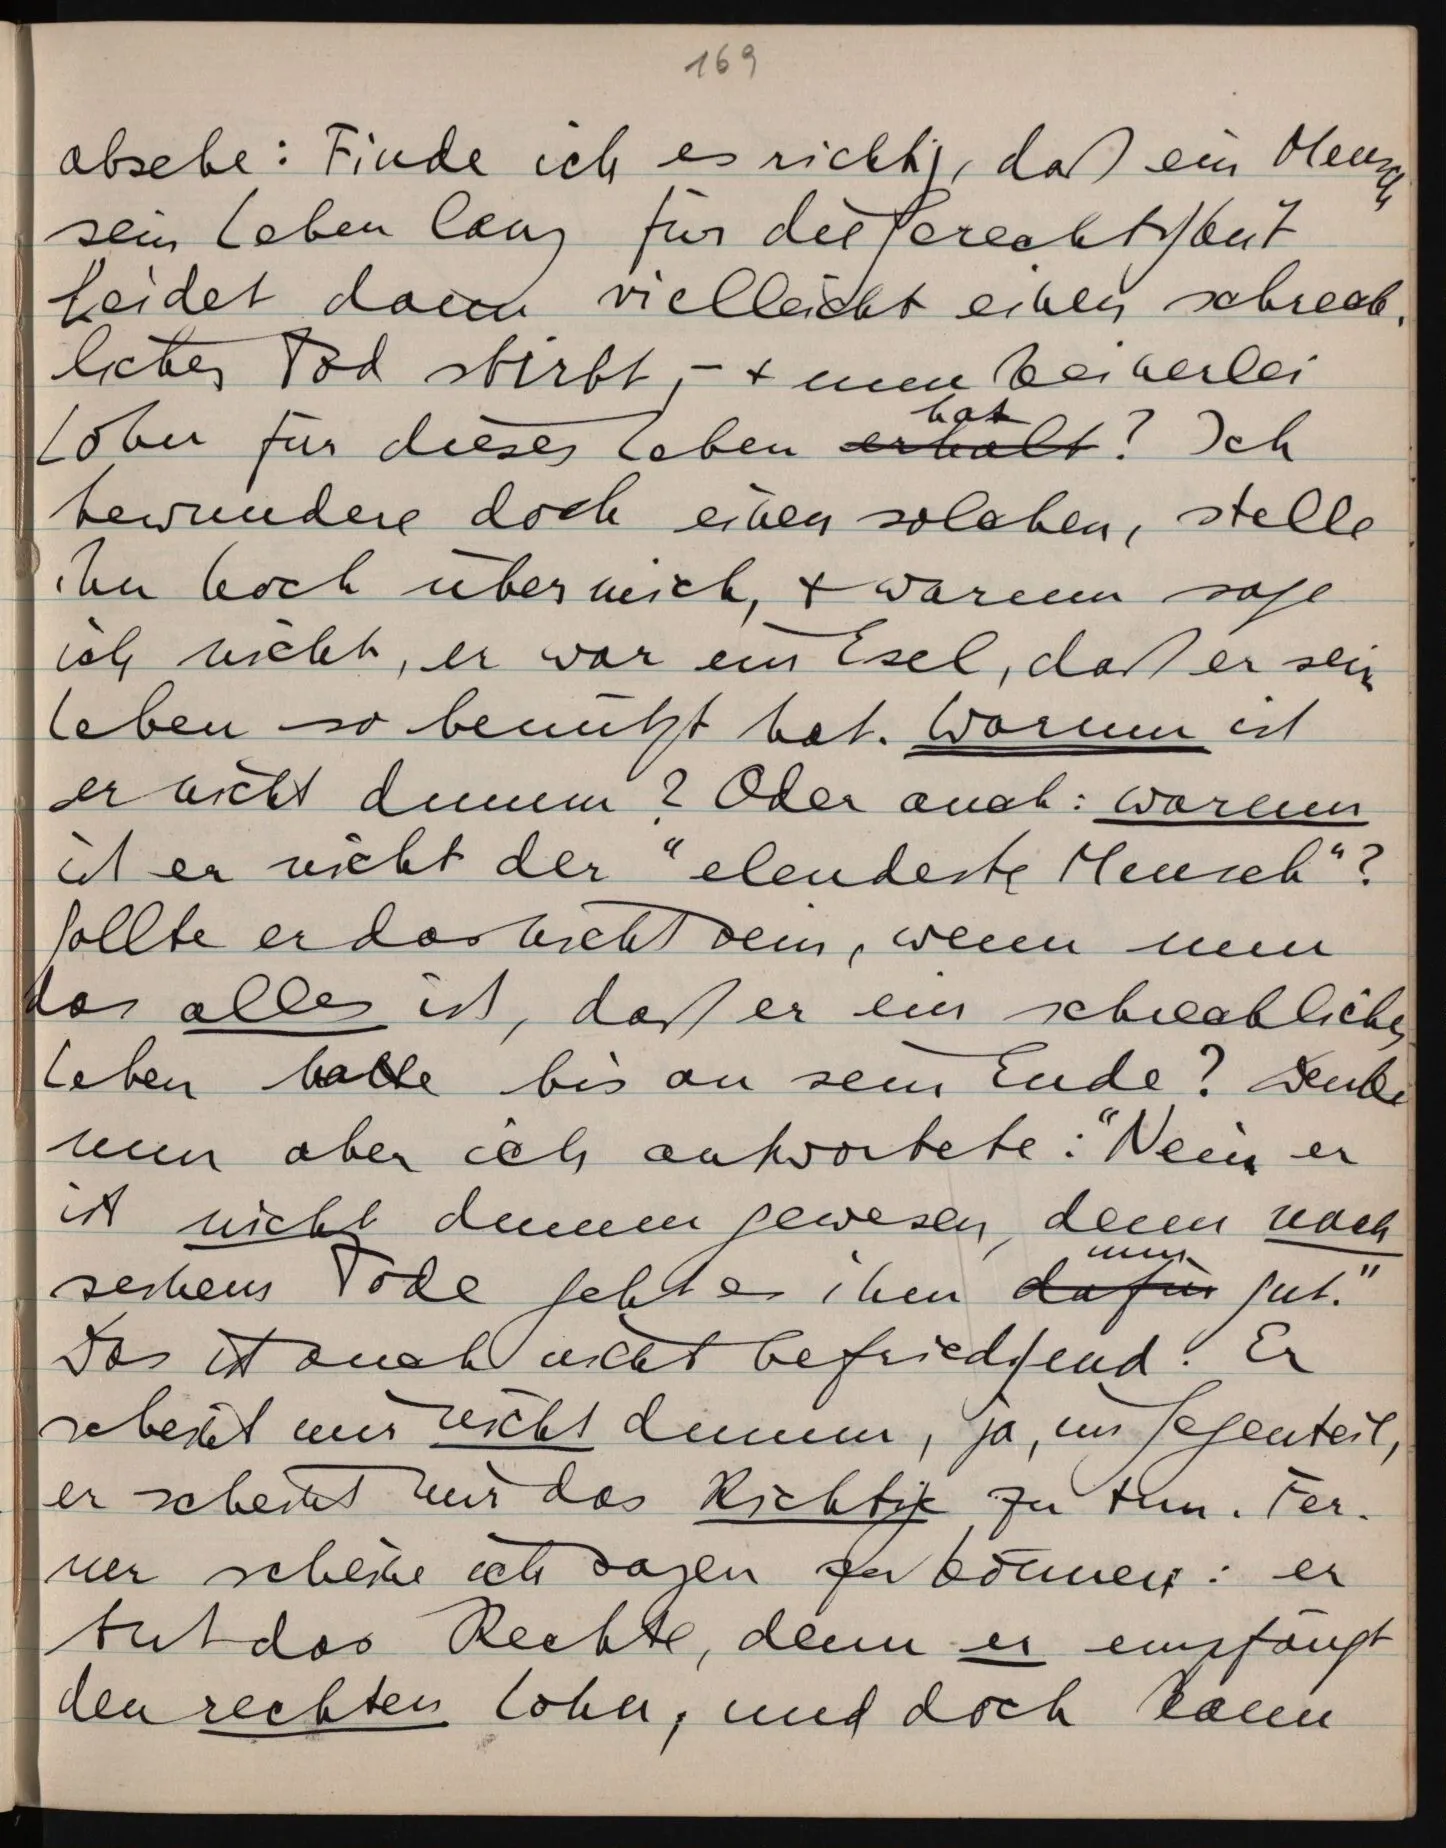 169
absehe: Finde ich es richtig, daß ein Mensch
sein Leben lang für die Gerechtigkeit
leidet dann vielleicht einen schreck-
lichen Tod stirbt, – + nun keinerlei
Lohn für dieses Leben erhält hat? Ich
bewundere doch einen solchen, stelle
ihn hoch über mich, + warum sage
ich nicht, er war ein Esel, daß er sein
Leben so benützt hat. Warum ist
er nicht dumm? Oder auch: warum
ist er nicht der "elendeste Mensch"?
Sollte er das nicht sein, wenn nun
das alles ist, daß er ein schreckliches
Leben hatte bis an sein Ende? Denke
nun aber ich antwortete: "Nein er
ist nicht dumm gewesen, denn nach
seinem Tode geht es ihm dafür nun gut."
Das ist auch nicht befriedigend. Er
scheint mir nicht dumm, ja, im Gegenteil,
er scheint mir das Richtige zu tun. Fer-
ner scheine ich sagen zu können: er
tut das Rechte, denn er empfängt
den rechten Lohn, und doch kann